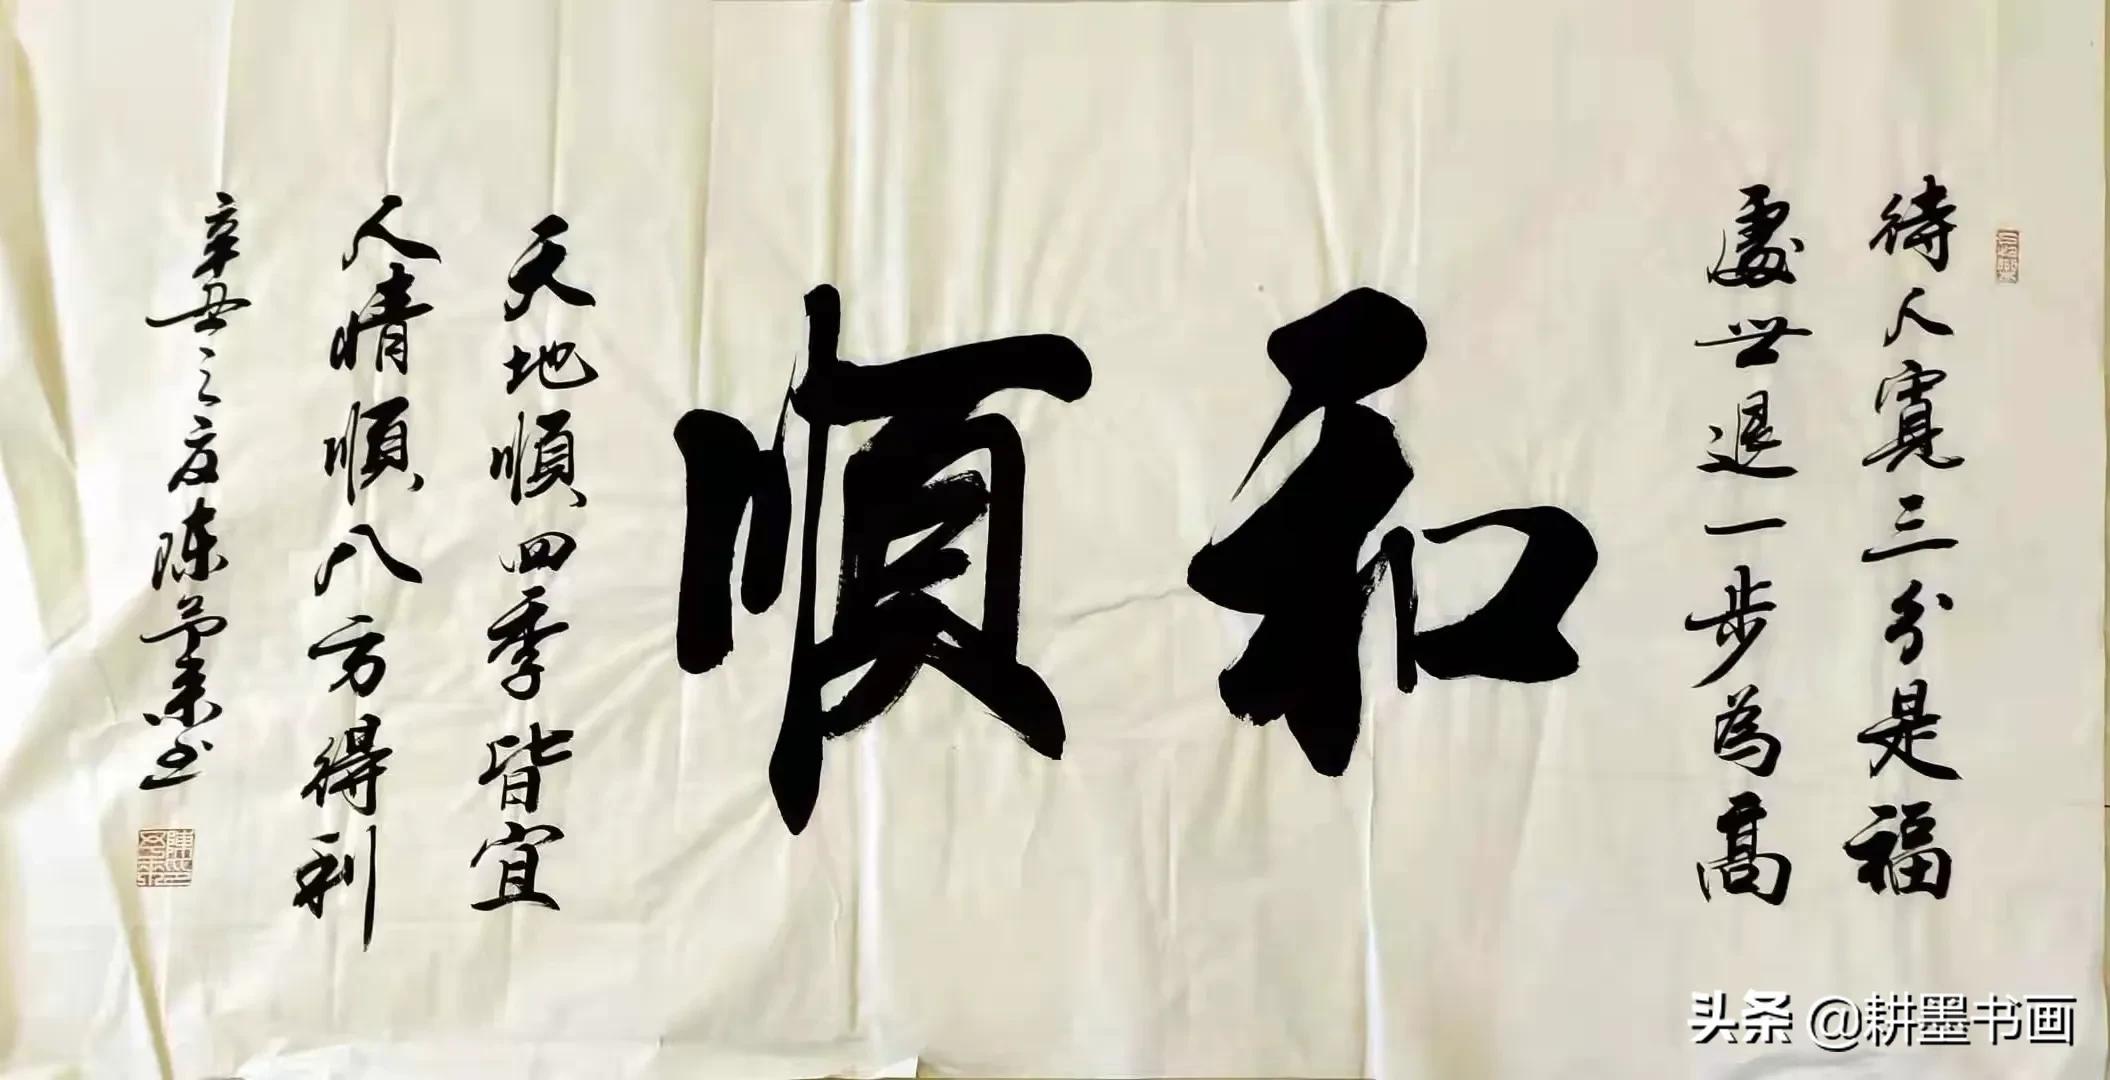 待人寬三分是福
處世退一步為高
和順
天地順四季皆宜
人情順八方得利
辛丑之夏陳予來书
头条 @耕墨书画